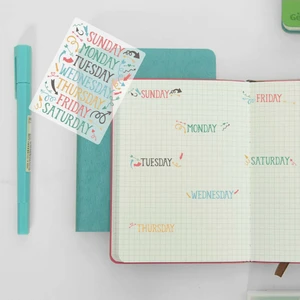 SUNDAY
MONDAY
TUESDAY
WEDNESDAY
THURSDAY
FRIDAY
SATURDAY
SUNDAY
MONDAY
TUESDAY
WEDNESDAY
THURSDAY
FRIDAY
SATURDAY